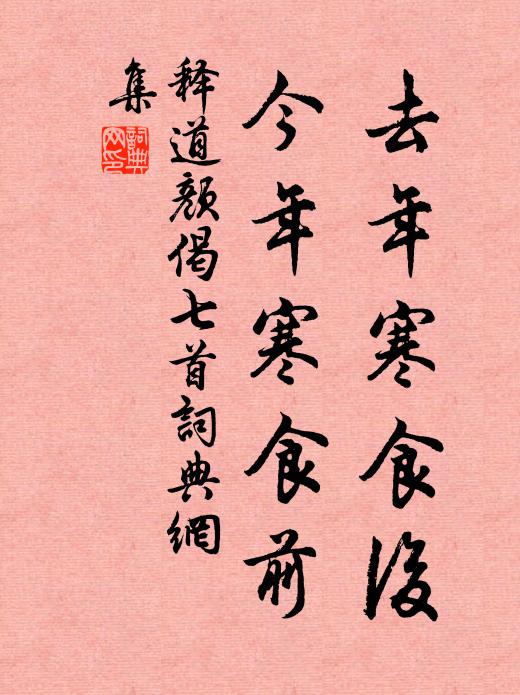 去年寒食後
今年寒食前
释道颜偈七首詞典網
集
詞典
网印